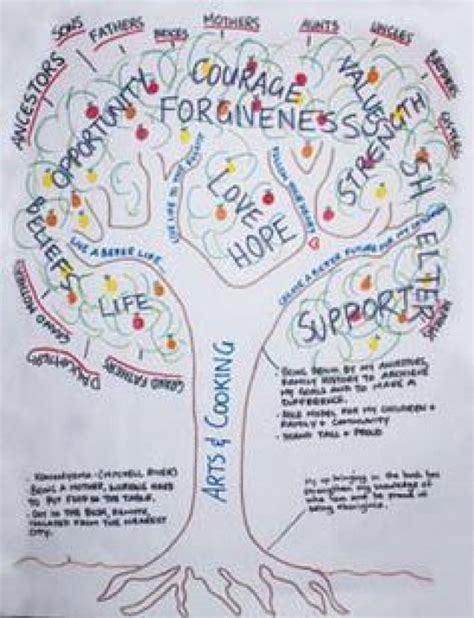 ANCESTORS
SONS
FATHERS
MOTHERS
AUNTS
UNCLES
BROTHERS
SISTERS
COURAGE
FORGIVENESS
OPPORTUNITY
VALUES
STRENGTH
SHELTER
LOVE
HOPE
LIVE LIFE TO THE FULLEST
FOLLOW YOUR HEART
BELIEFS
LIVE A BETTER LIFE
CREATE A BETTER FUTURE FOR MY
LIFE
SUPPORT
GRAND MOTHERS
DAUGHTERS
GRAND FATHERS
ARTS & COOKING
- BEING BY MY ANCESTORS,
FAMILY HISTORY TO ACHIEVE
MY GOALS AND TO MAKE A
DIFFERENCE.
- ROLE MODEL FOR MY CHILDREN +
FAMILY + COMMUNITY
- STAND TALL + PROUD
- (MITCHELL RIVER)
BEING A MOTHER, WORKING HARD
TO PUT FOOD IN THE TABLE.
- OUT IN THE BUSH, REMOTE,
ISOLATED FROM THE NEAREST
CITY.
My up bringing in the bush has
strengthen my knowledge of
who I am and be proud of
being